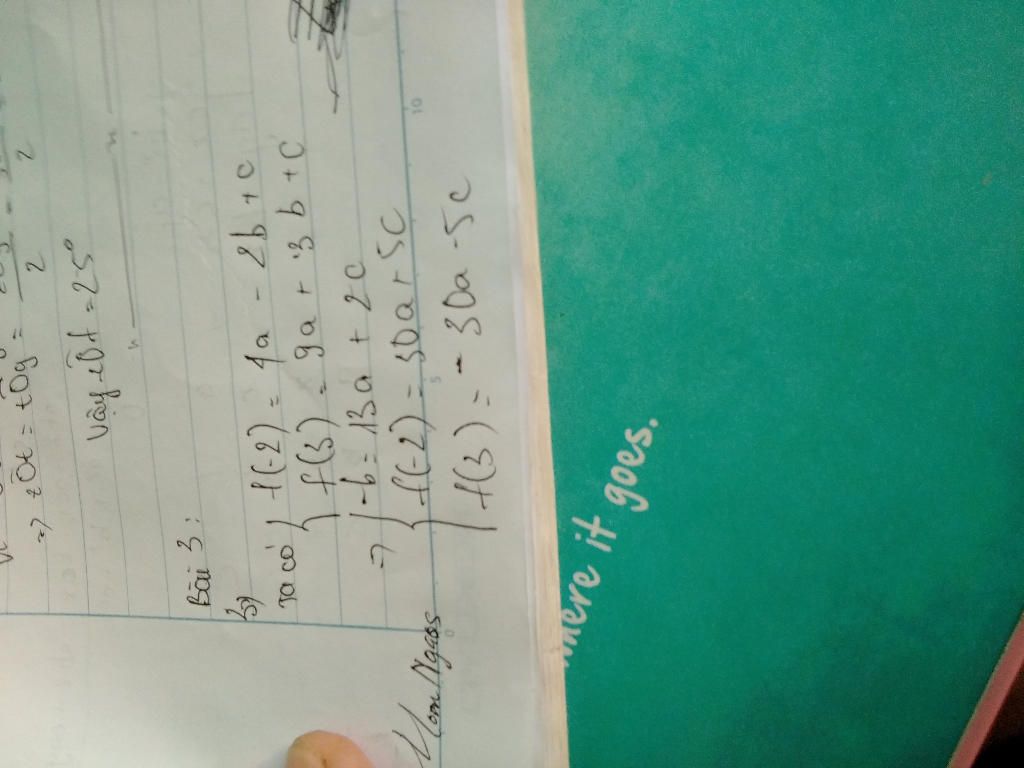 =) zÔt = tÔy =
2
2
Vậy zÔt = 25°
Bài 3:
b)
Ta có
f(-2) = 4a - 2b + c
f(3) = 9a + 3b + c
=)
-b = 13a + 2c
f(-2) = 30a + 5c
f(3) = - 30a - 5c
where it goes.
10
5
0